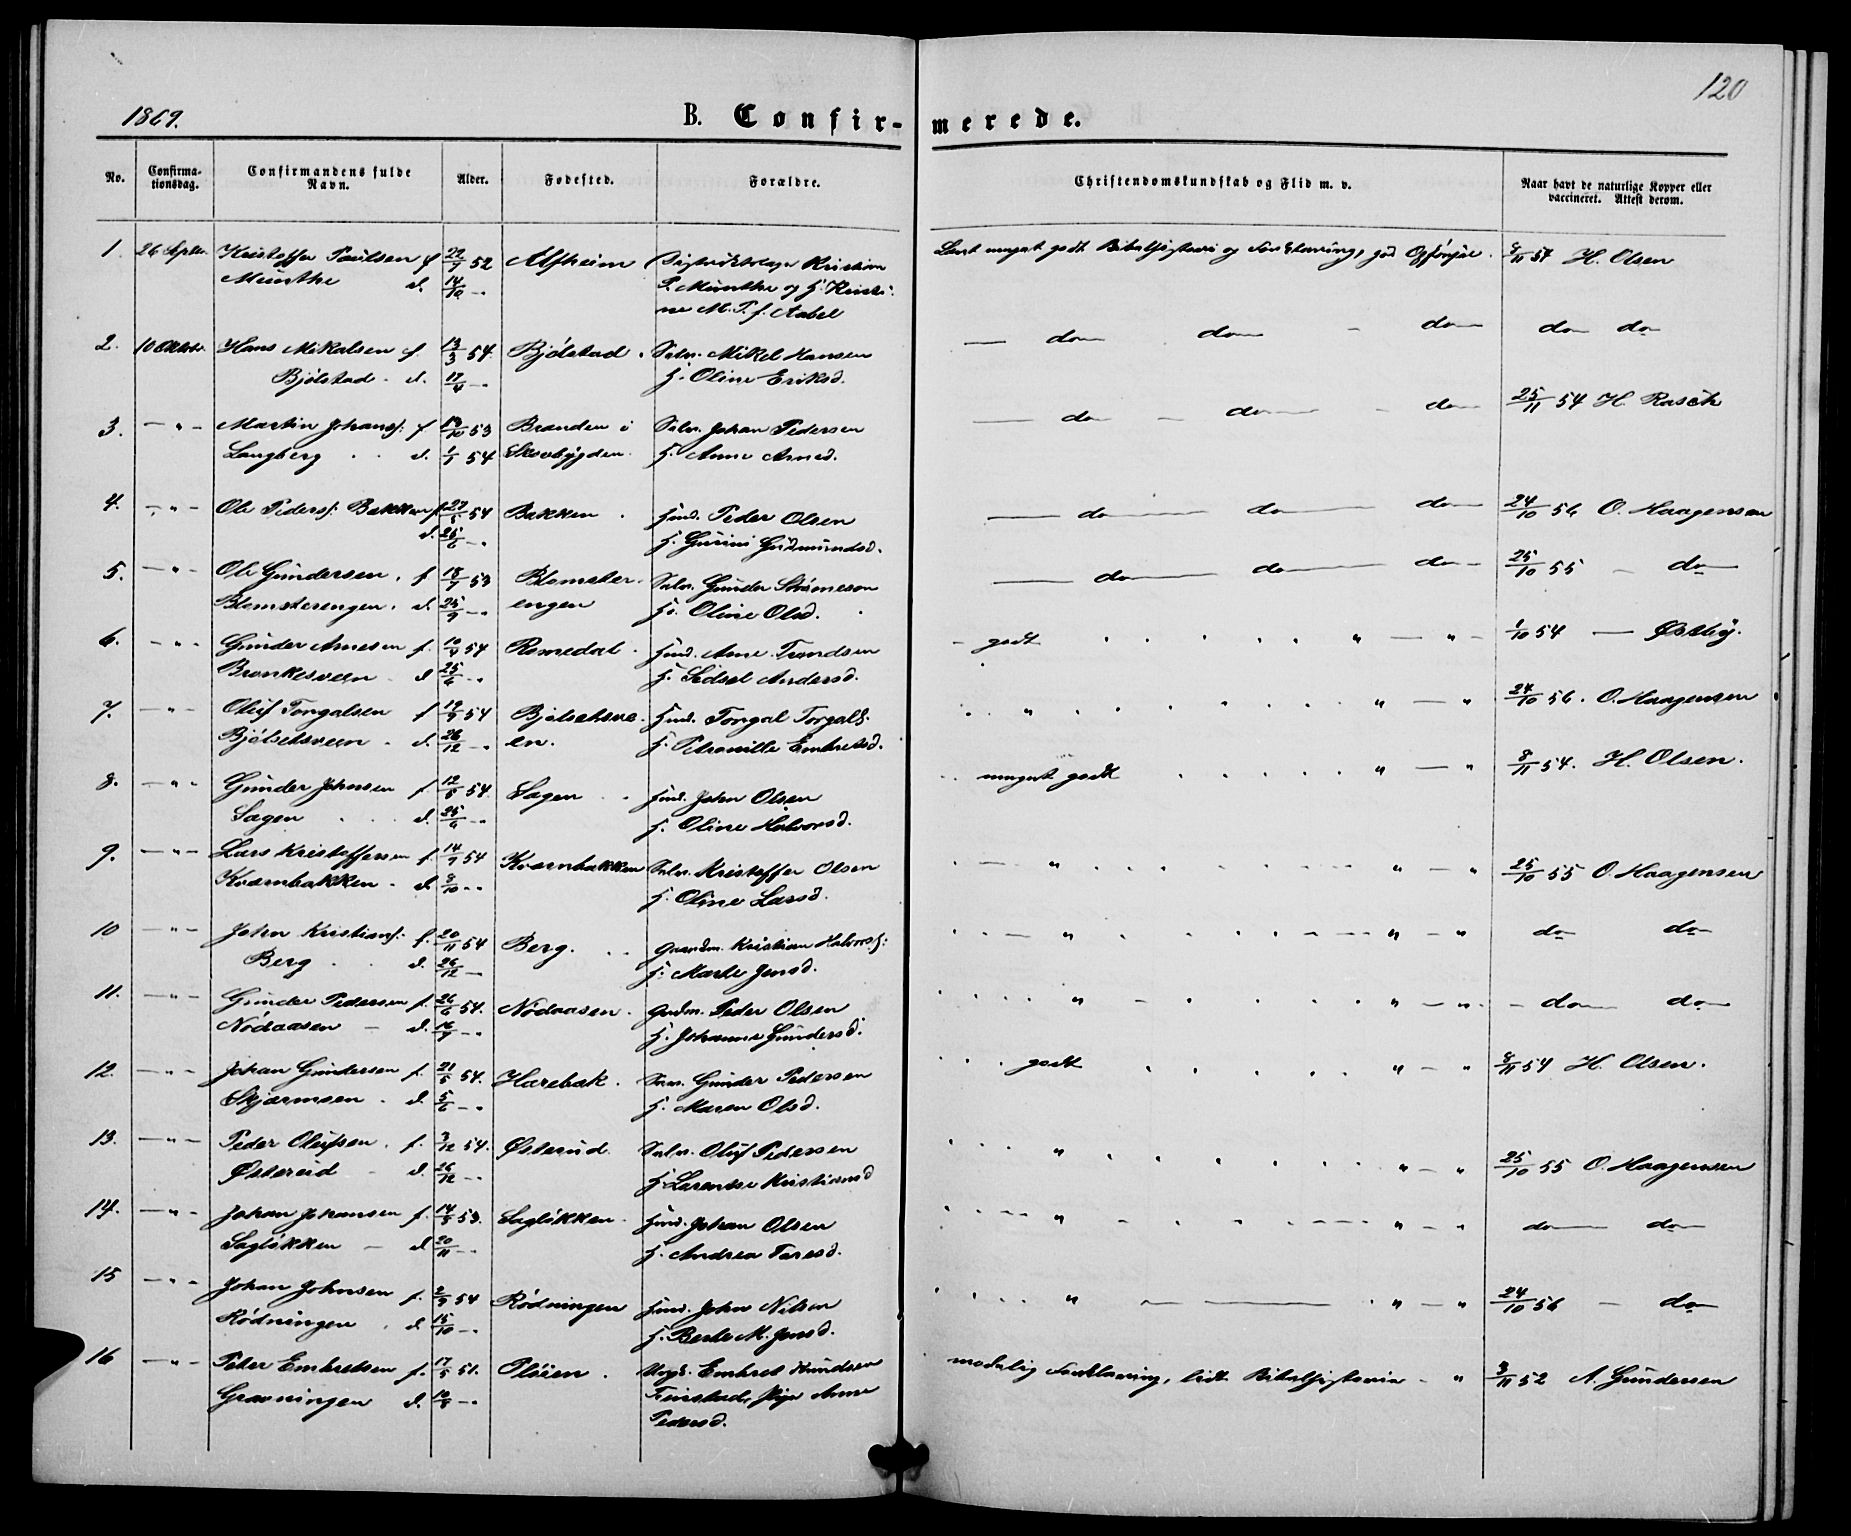 120
1869.
B. Confir- merede.
No.
Confirma-
tionsdag.
Confirmandens fulde
Navn.
Alder.
Fødested.
Forældre.
Christendomskundskab og Flid m. v.
Naar havt de naturlige Kopper eller
vaccineret. Attest derom.
1. 26 Septbr. Kristoffer Paulsen f 22/7 52 Alfheim Kristian
Munthe d. 14/10 -„ P. Munthe og H. Kristi-
ne M. T. f. Aabel
Læst meget godt Bibelhistorie og Forklaring, god Opførsel. 8/11 54 H. Olsen
2. 10 Oktobr. Hans Mikalsen f. 13/3 54. Bjølstad. Selv. Mikel Hansen
Bjølstad - d. 17/4 -„ H. Oline Eriksd.
— do — do — do do do
3. — „ — Martin Johans: f 19/10 53 Branden i Selv. Johan Pedersen
Langberg . . d. 1/1 54 Skovbygden. H. Anne Arnesd.
— do — do — do 25/11 54 H. Rasch
4. — „ — Ole Peders: Bakken f. 27/5 54 Bakken . Husm. Peder Olsen
d. 25/6 -„ H. Gurine Gudmundsd.
— do — do — do 24/10 56 O. Haagensen
5. — „ — Ole Gundersen. f 18/7 53 Blomster- Selv. Gunder
Blomsterengen. d. 25/9 -„ engen H. Oline Olsd.
— do — do — do 25/10 55 — do
6. — „ — Gunder Arnesen f. 10/4 54 Romedal. Husm. Arne Trondsen
d 25/6 -„ H. Sidsel Andersd.
- godt „ — „ 1/10 54 — Østby.
7. — „ — Oluf Torgalsen f 19/9 54 Bjølsetsve- Husm. Torgal Torgals:
Bjølsetsveen . d. 26/12 -„ en. H. Petronille Embretsd.
„ „ — „ 24/10 56. O. Haagensen
8. — „ — Gunder Johnsen f. 12/5 54 Sagen . . Husm. John Olsen
Sagen . . . d. 25/6 -„ H. Oline Halvorsd.
meget godt „ — „ 8/11 54. H. Olsen.
9. — „ — Lars Kristoffersen f. 14/9 54 Kværnbakken Selv. Kristoffer Olsen
Kværnbakken . d. 8/10 -„ H. Oline Larsd.
— „ „ — „ 25/10 55 O. Haagensen
10 — „ — John Kristians: f. 20/11 54 Berg. . . Gaardm. Kristian Halvors:
Berg . . d. 26/12 — H. Marte Jensd.
— „ „ — „ do do
11. — „ — Gunder Pedersen f. 26/6 54. Nødaasen . Gaardm. Peder Olsen
Nødaasen — d. 16/7 -„ H. Johanne Gundersd.
„ „ — „ - do do
12. — „ — Johan Gundersen f. 21/5 54. Harebak . Selv. Gunder Pedersen
d. 5/6 -„ H. Maren Olsd.
godt „ — „ 8/11 54 H. Olsen.
13. — „ — Peder Olufsen. f. 3/12 54. Østerud. Selv. Oluf Pedersen
Østerud — d. 26/12 -„ H. Larentse Kristiansd
„ „ — „ 25/10 55 O. Haagensen
14. — „ — Johan Johansen f. 14/9 53. Sagløkken. Husm. Johan Olsen
Sagløkken — d 20/11 -„ H. Andrea Taresd.
„ „ — „ do do
15 — „ — Johan Johnsen f. 2/9 54 Rødningen Husm. John Nilsen
Rødningen . d. 15/10 -„ H. Berte M. Jensd.
„ — „ — „ 24/10 56 — do
16 — „ — Peter Embretsen f. 17/5 51. Oløien . Ungk. Embret Knudsen
Grønningen d. 10/8 -„ Finstad, Pige Anne
Pedersd.
maadelig Forklaring, lidt Bibelhistorie - „ 3/11 52 A. Gundersen